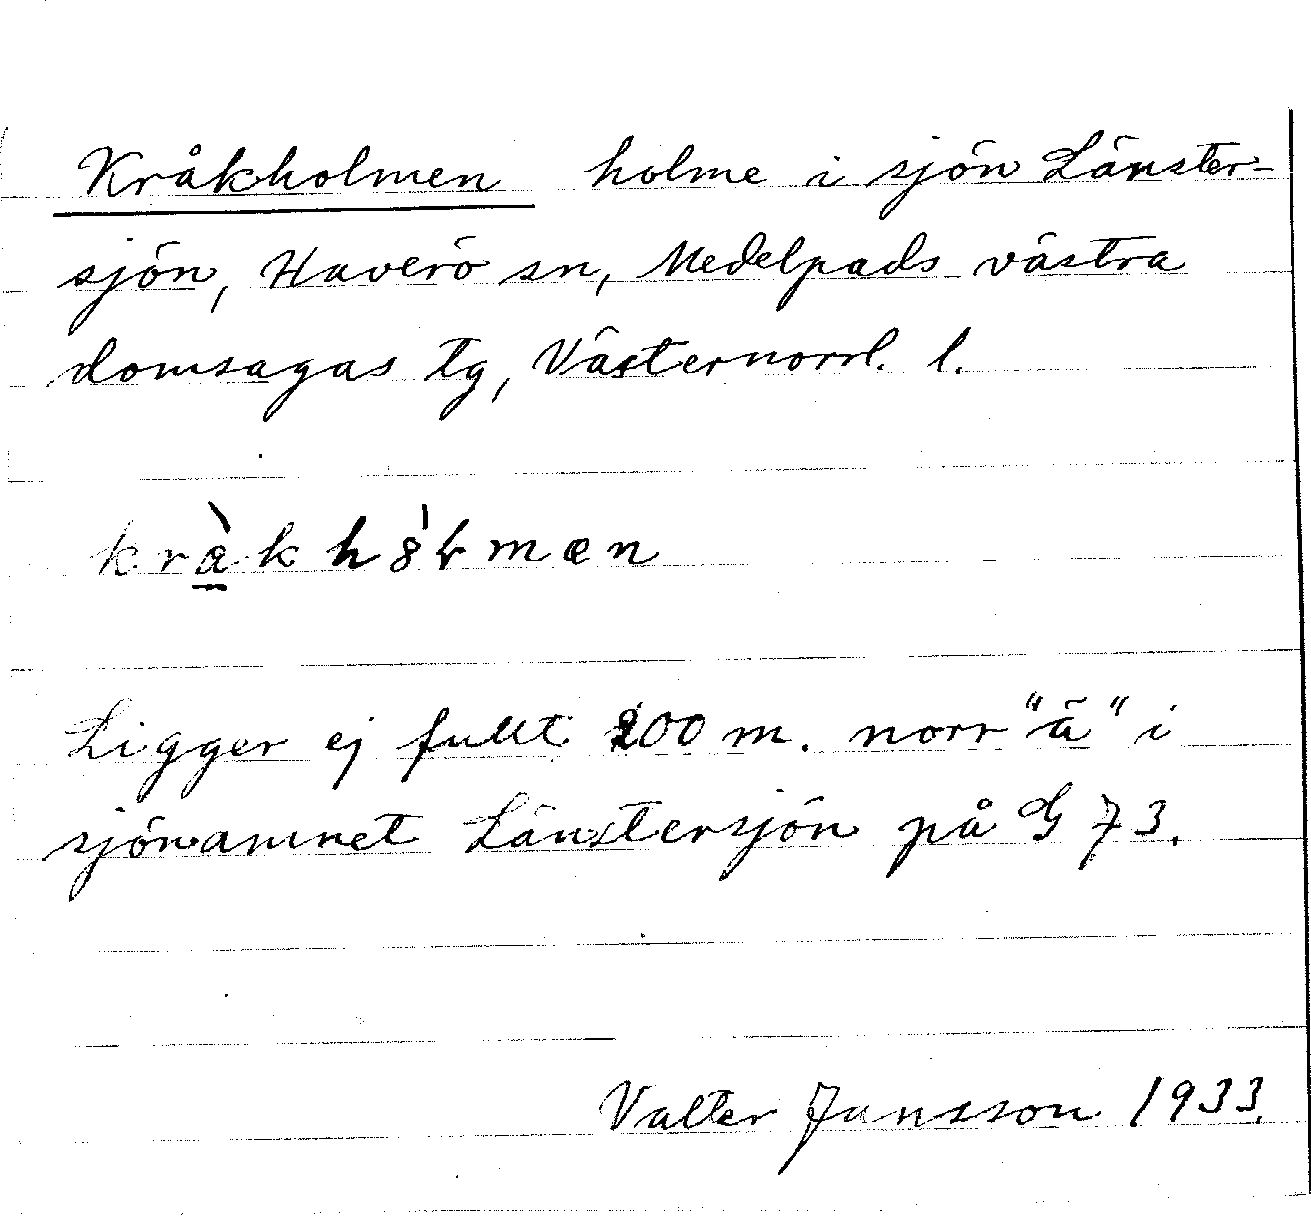 Kråkholmen holme i sjön Länster-
sjön, Haverö sn, Medelpads västra
domsagas tg, Västernorrl. l.
Ligger ej fullt 200 m. norr "ä" i
sjönamnet Länstersjön på G 73.
Valter Jansson 1933.